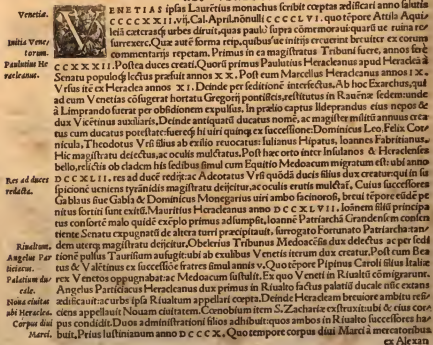 Venetiæ.
Initia Venetorum.
Paulutius Heracleanus.
Res ad duces redacta.
Riualtum.
Angelus Particiacus.
Palatium ducale.
Noua ciuitas ubi Heraclea.
Corpus diui Marci.
VENETIAS ipsas Laurētius monachus scribit cœptas ædificari anno salutis
CCCCXXII. vij. Cal. April. nonulli CCCCLVI. quo tēpore Attila Aqui
leiā cæterasq; urbes diruit, quas paulo supra cōmemoraui: quarū ue ruinæ
surrexere. Quæ autē forma reip. quibusue initijs creuerint breuiter ex eorum
commentarijs repetam. Primus in ea magistratus Tribuni fuere, annos ferè
CCXXXII. Postea duces creati. Quorū primus Paulutius Heracleanus apud Heracleā à
Senatu populoq; lectus præfuit annos XX. Post eum Marcellus Heracleanus annos IX.
Vrsus itē ex Heraclea annos XI. Deinde per seditionē interfectus. Ab hoc Exarchus, qui
ad eum Venetias cōfugerat hortatu Gregorij pontificis, restitutus in Rauēnæ sede: unde
à Limprando fuerat per obsidionem expulsus. In prælio captus Ildeprandus eius nepos &
dux Vicētinus auxiliaris. Deinde antiquatū ducatus nomē, ac magister militū annuus crea
tus cum ducatus potestate: fuereq; hi uiri quinq; ex successione: Dominicus Leo, Felix Cor
nicula, Theodotus Vrsi filius ab exilio reuocatus: Iulianus Hipatus, Ioannes Fabritianus.
Hic magistratu deiectus, ac oculis mulctatus. Post hæc orto inter Insulanos & Heracleanos
bello, relictis ob cladem his sedibus simul cum Equitio Medoacum migratum est: ubi anno
DCCXLII. res ad ducē redijt: ac Adeotatus Vrsi quōdā ducis filius dux creatur: qui in su
spicionē ueniens tyrānidis magistratu deijcitur, ac oculis erutis mulctat̃. Cuius successores
Gablaus siue Gabla & Dominicus Monegarius uiri ambo facinorosi, breui tēpore eūdē pe
nitus sortiti sunt exitū. Mauritius Heracleanus anno DCCXLVII, Ioānem filiū principa
tus consortē malo quidē exēplo primus adsumpsit. Ioannē Patriarchā Grandensem consen
tiente Senatu expugnatū de altera turri præcipitauit, surrogato Fortunato Patriarcha: tan
dem uterq; magistratu deijcitur. Obelerius Tribunus Medoacēsis dux delectus ac per sedi
tionē pulsus Taurisium aufugit: ubi ab exulibus Venetis iterum dux creatur. Post eum Bea
tus & Valētinus ex successiōe fratres simul annis V. Quo tēpore Pipinus Caroli filius Italiæ
rex Venetos oppugnabat: ac Medoacum sustulit. Ex quo Veneti in Riualtū cōmigrarunt.
Angelus Particiacus Heracleanus dux primus in Riualto factus palatiū ducale nūc extans
ædificauit: ac urbs ipsa Riualtum appellari cœpta. Deinde Heracleam breuiore ambitu refi=
ciens appellauit Nouam ciuitatem. Cœnobium item S. Zachariæ extruxit: ubi & eius cor=
pus conditū. Duos administrationi filios adhibuit: quos ambos in Riualto successores ha=
buit. Prius Iustinianum anno DCCCX. Quo tempore corpus diui Marci à mercatoribus
ex Alexan